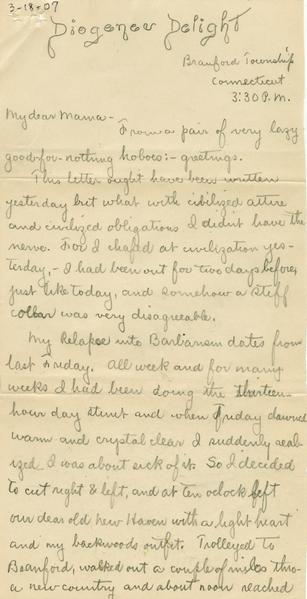 3-18-07
Diogenes Delight
Branford Township
Connecticut
3:30 P.M.
My dear Mama -
From a pair of very lazy
good-for-nothing hoboes:- greetings.
This letter ought have been written
yesterday but what with civilized attire
and civilized obligations I didn't have the
nerve. For I chafed at civilization yes-
terday,- I had been out for two days before,
just like today, and somehow a stiff
collar was very disagreeable.
My Relapse into Barbarism dates from
last Friday. All week and for many
weeks I had been doing the thirteen-
hour day stunt and when Friday dawned
warm and crystal clear I suddenly real-
ized I was about sick of it. So I decided
to cut right & left, and at ten oclock left
our dear old New Haven with a light heart
and my backwoods outfit. Trolleyed to
Branford, walked out a couple of miles thro-
a new country and about noon reached